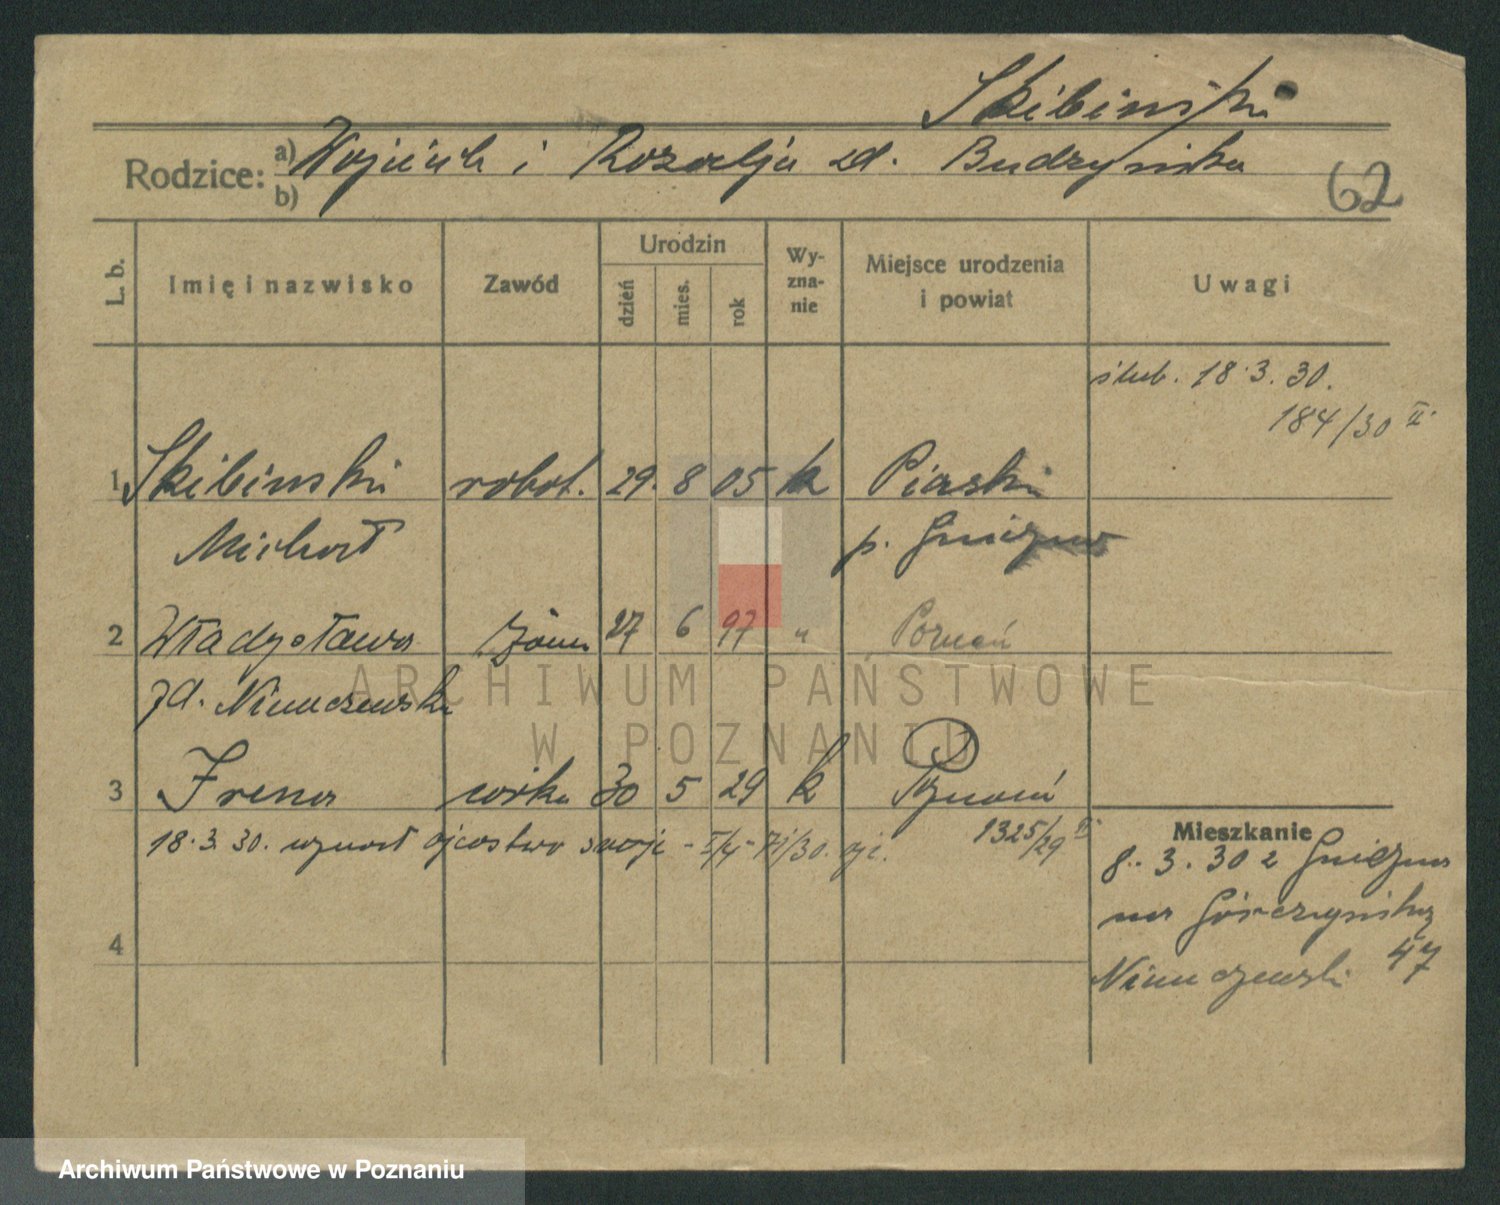 Skibiński
Rodzice: a) Wojciech i Rozalja zd. Budzyńska
b)
62
L. b.
Imię i nazwisko
Zawód
Urodzin
dzień
mies.
rok
Wy-
zna-
nie
Miejsce urodzenia
i powiat
Uwagi
ślub. 18.3.30.
184/30 II.
1 Skibiński robot. 29. 8 05 k Piaski
Michał p. Gniezno
2 Władysława żona 27 6 97 " Poznań
zd. Niemczewska
3 Irena córka 30 5 29 k Poznań
18.3.30. uznał ojcostwo swoje 1325/29 II.
Mieszkanie
8.3.30 z Gniezno
na Górczyńską
47
Niemczewski
4
ARCHIWUM PAŃSTWOWE
W POZNANIU
Archiwum Państwowe w Poznaniu